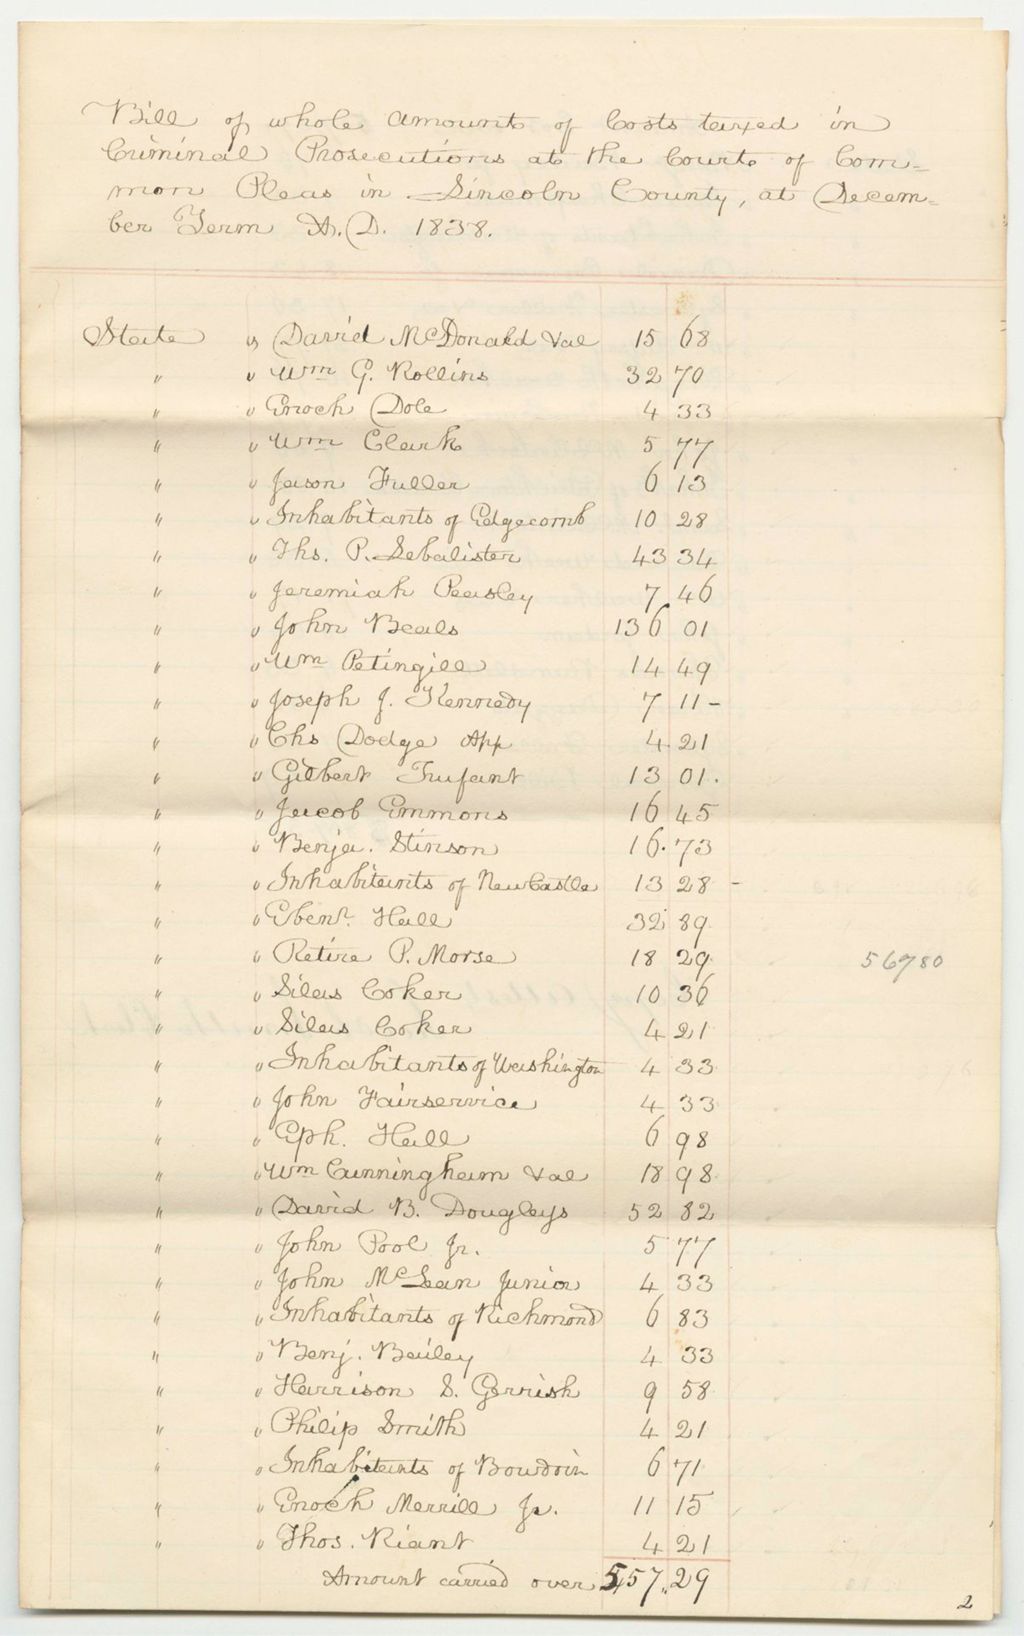 Bill of whole Amount of Costs taxed in
Criminal Prosecutions at the Court of Com=
mon Pleas in Lincoln County, at Decem=
ber Term A.D. 1838.
State vs David McDonald & al 15 68
" v Wm G. Rollins 32 70
" v Enoch Dole 4 33
" v Wm Clark 5 77
" v Jason Fuller 6 13
" v Inhabitants of Edgecomb 10 28
" v Ths. P. Lebalister 43 34
" v Jeremiah Peasley 7 46
" v John Beals 136 01
" v Wm Petingill 14 49
" v Joseph J. Kennedy 7 11 -
" v Chs Dodge App 4 21
" v Gilbert Trufant 13 01.
" v Jacob Emmons 16 45
" v Benja. Stinson 16. 73
" v Inhabitants of New Castle 13 28 -
" v Ebenr. Hall 32 89
" v Retire P. Morse 18 29 56780
" v Silas Coker 10 36
" v Silas Coker 4 21
" v Inhabitants of Washington 4 33
" v John Fairservice 4 33
" v Eph. Hall 6 98
" v Wm Cunningham & al 18 98
" v David B. Dougleys 52 82
" v John Pool Jr. 5 77
" v John McLean Junior 4 33
" v Inhabitants of Richmond 6 83
" v Benj. Bailey 4 33
" v Harrison S. Gerrish 9 58
" v Philip Smith 4 21
" v Inhabitants of Bowdoin 6 71
" v Enoch Merrill Jr. 11 15
" v Thos. Riant 4 21
Amount carried over 557,, 29
2